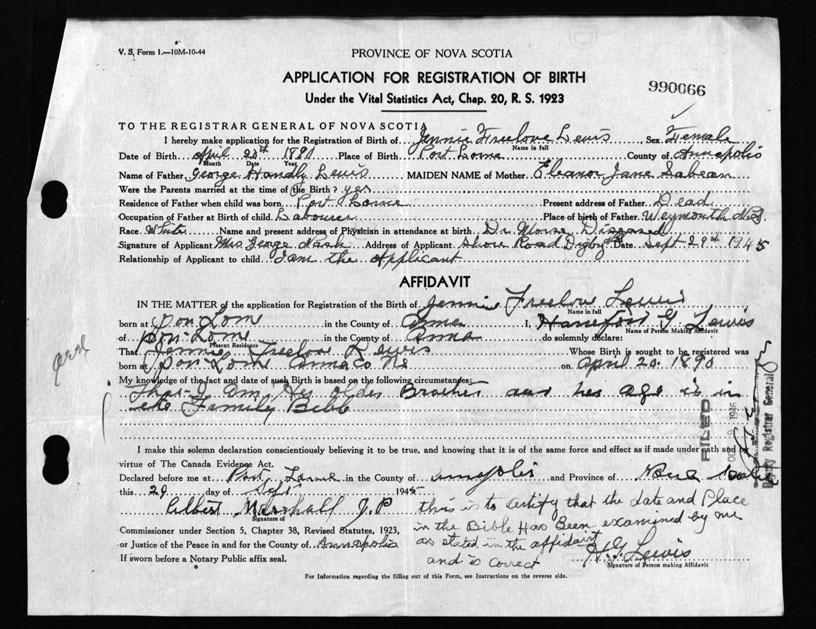 V. S. Form 1.—10M-10-44
PROVINCE OF NOVA SCOTIA
APPLICATION FOR REGISTRATION OF BIRTH
990066
Under the Vital Statistics Act, Chap. 20, R. S. 1923
TO THE REGISTRAR GENERAL OF NOVA SCOTIA
I hereby make application for the Registration of Birth of Jennie Freelove Lewis Sex Female
Name in full
Date of Birth April 20th 1890 Place of Birth Port Lorne County of Annapolis
Month Date Year
Name of Father George Handly Lewis MAIDEN NAME of Mother Eleanor Jane Sabean
Were the Parents married at the time of the Birth? yes
Residence of Father when child was born Port Lorne Present address of Father Dead
Occupation of Father at Birth of child Labourer Place of birth of Father Weymouth N.S
Race White Name and present address of Physician in attendance at birth Dr Morse Diseased
Signature of Applicant Mrs George Nash Address of Applicant Shore Road Digby Date Sept 29th 1945
Relationship of Applicant to child I am the Applicant
AFFIDAVIT
IN THE MATTER of the application for Registration of the Birth of Jennie Freelov Lewis
Name in full
born at Pon Lom in the County of Anna I, G Lewis
Name of Person Making Affidavit
of Pon Lom in the County of Anna do solemnly declare:
Present Residence
That Jennie Freelov Lewis Whose Birth is sought to be registered was
born at Pon Lom Anna Co Ns on April 20. 1890
My knowledge of the fact and date of such Birth is based on the following circumstances:
That I Am Her older Brother and her age is in
the Family Bible
I make this solemn declaration conscientiously believing it to be true, and knowing that it is of the same force and effect as if made under oath and
virtue of The Canada Evidence Act.
Declared before me at Port Lorne in the County of Annapolis and Province of Nova Scotia
this 29 day of Sept 1945
Marshall J.P
Signature of
this is to certify that the date and Place
in the Bible Has Been examined by me
as stated in the affidavit
and is correct
Commissioner under Section 5, Chapter 38, Revised Statutes, 1923,
or Justice of the Peace in and for the County of Annapolis
If sworn before a Notary Public affix seal.
H.G. Lewis
Signature of Person making Affidavit
For Information regarding the filling out of this Form, see Instructions on the reverse side.
FILED
1946
Deputy Registrar General